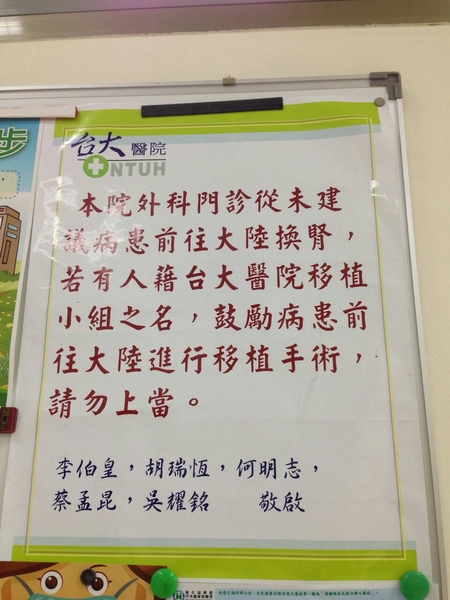 步
台大醫院
NTUH
本院外科門診從未建
議病患前往大陸換腎，
若有人藉台大醫院移植
小組之名，鼓勵病患前
往大陸進行移植手術，
請勿上當。
李伯皇，胡瑞恆，何明志，
蔡孟昆，吳耀銘　　敬啟